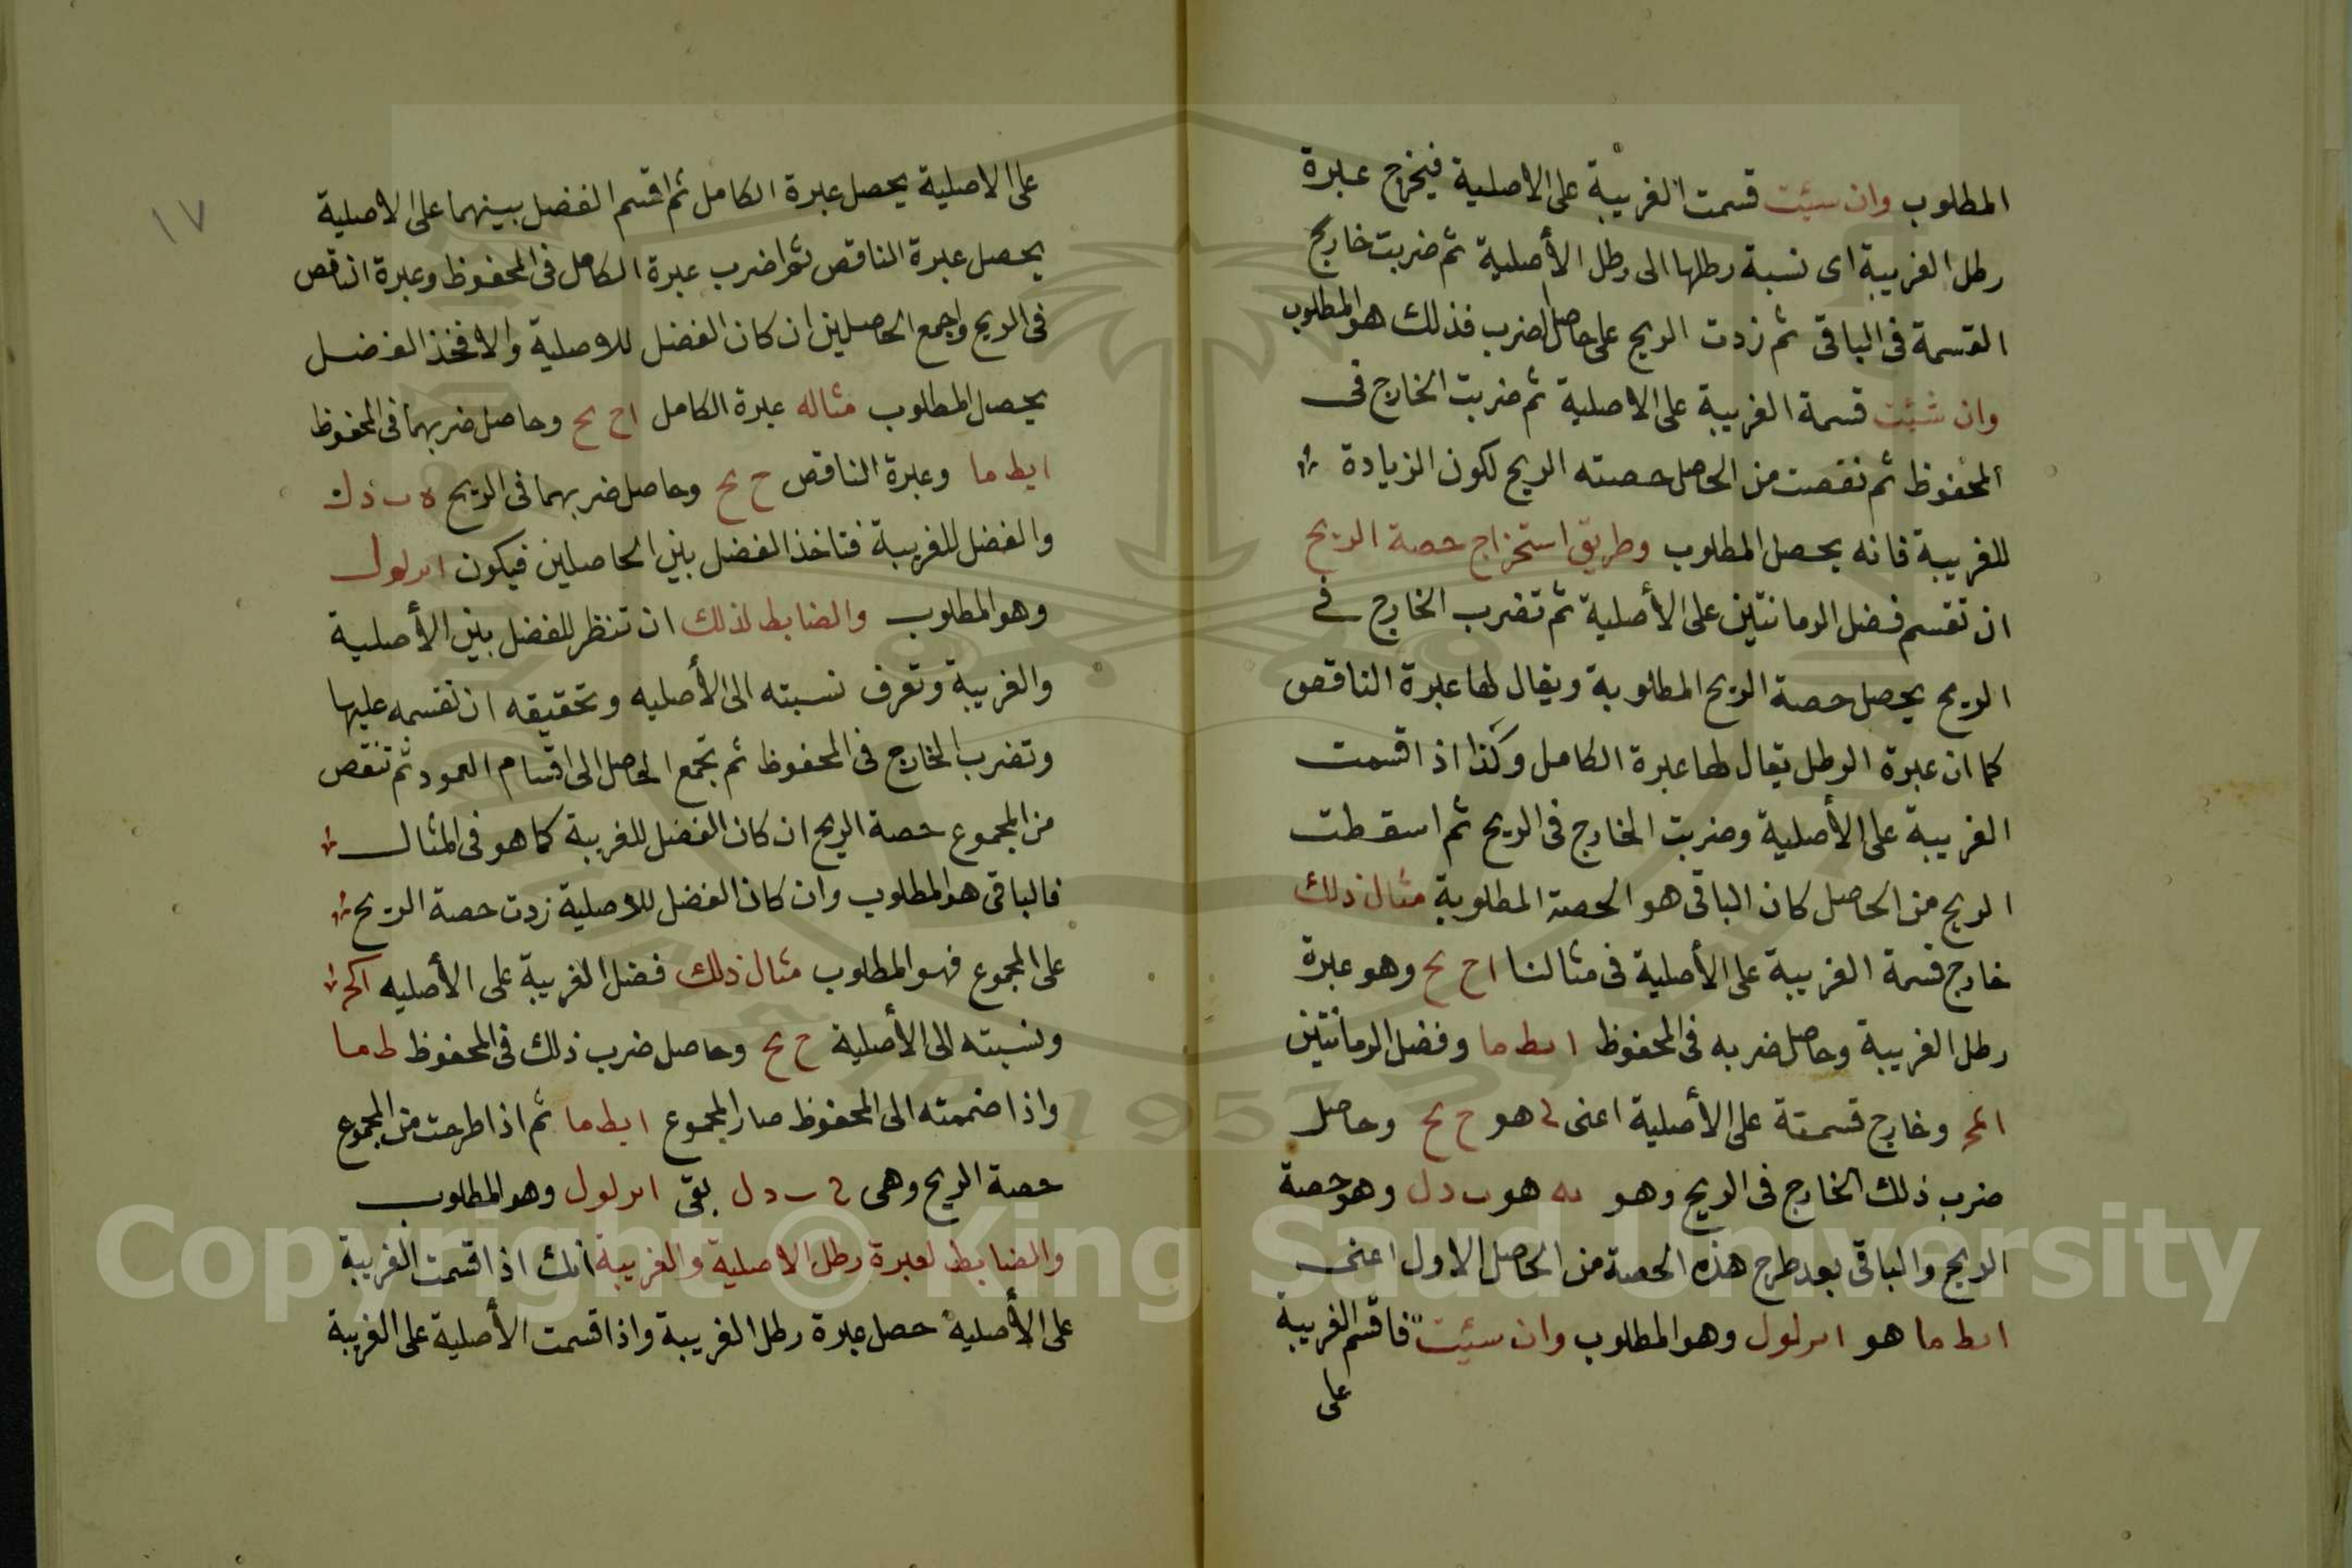 المطلوب وان سئت قسمت الغريبة على الاصلية فيخرج عبرة
رطل الغريبة اى نسبة رطلها الى رطل الأصلية ثم ضربت خارج
القسمة فى الباقى ثم زدت الريح على حاصل الضرب فذلك هو المطلوب
وان شئت قسمة الغريبة على الاصلية ثم ضربت الخارج فى
المحفوظ ثم نقصت من الحاصل حصته الريح لكون الزيادة
للغريبة فانه يحصل المطلوب وطريق استخراج حصة الريح
ان تقسم فضل الرمانتين على الأصلية ثم تضرب الخارج فى
الريح يحصل حصة الريح المطلوبة ويقال لها عبرة الناقص
كما ان عبرة الرطل يقال لها عبرة الكامل وكذا اذا قسمت
الغريبة على الأصلية وضربت الخارج فى الريح ثم اسقطت
الريح من الحاصل كان الباقى هو الحصة المطلوبة مثال ذلك
خارج قسمة الغريبة على الأصلية فى مثالنا اح يح وهو عبرة
رطل الغريبة وحاصل ضربه فى المحفوظ ابط ما وفضل الرمانتين
وخارج قسمتة على الأصلية اعنى هو ح يح وحاصل
ضرب ذلك الخارج فى الريح وهو هو وهو حصة
الريح والباقى بعد طرح هذه الحصة من الحاصل الاول اعنى
ابط ما هو ابرلول وهو المطلوب وان سئت فاقسم الغريبة
على
١٧
على الاصلية يحصل عبرة الكامل ثم اقسم الفضل بينهما على الاصلية
يحصل عبرة الناقص ثم اضرب عبرة الكامل فى المحفوظ وعبرة الناقص
فى الريح واجمع الحاصلين ان كان الفضل للاصلية والا فخذ الفضل
يحصل المطلوب مثاله عبرة الكامل اح يح وحاصل ضربهما فى المحفوظ
ابط ما وعبرة الناقص ح يح وحاصل ضربهما فى الريح
والفضل للغريبة فتاخذ الفضل بين الحاصلين فيكون ابرلول
وهو المطلوب والضابط لذلك ان تنظر للفضل بين الأصلية
والغريبة وتعرف نسبته الى الأصليه وتحقيقه ان تقسمه عليها
وتضرب الخارج فى المحفوظ ثم تجمع الحاصل الى اقسام العمود ثم تنقص
من المجموع حصة الريح ان كان الفضل للغريبة كما هو فى المثال
فالباقى هو المطلوب وان كان الفضل للاصلية زدت حصة الريح
على المجموع فهو المطلوب مثال ذلك فضل الغريبة على الأصليه
ونسبته الى الأصلية ح يح وحاصل ضرب ذلك فى المحفوظ ط ما
واذا ضممته الى المحفوظ صار المجموع ابط ما ثم اذا طرحت من المجموع
حصة الريح وهى بقى ابرلول وهو المطلوب
والضابط لعبرة رطل الاصلية والغريبة أنك اذا قسمت الغريبة
على الأصلية حصل عبرة رطل الغريبة واذا قسمت الأصلية على الغريبة
Copyright © King Saud University
1957